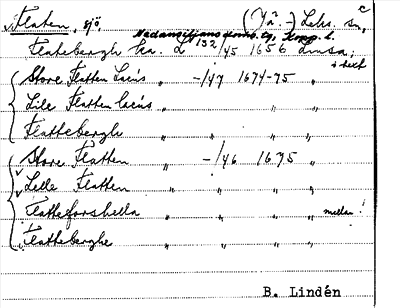 Flaten, sjö, (Ya. -) Lehs. sn,
Flattebergh ka. L 132/45 1656 Lmsa;
Store Flatten lacus " -/47 1674-75 "
Lille Flatten lacus " " " "
Flattebergh " " " "
Store Flatten " -/46 1675 "
Lelle Flatten " " " "
Flatteforshella " " " " mellan!
Flatteberghe " " " "
B. Lindén